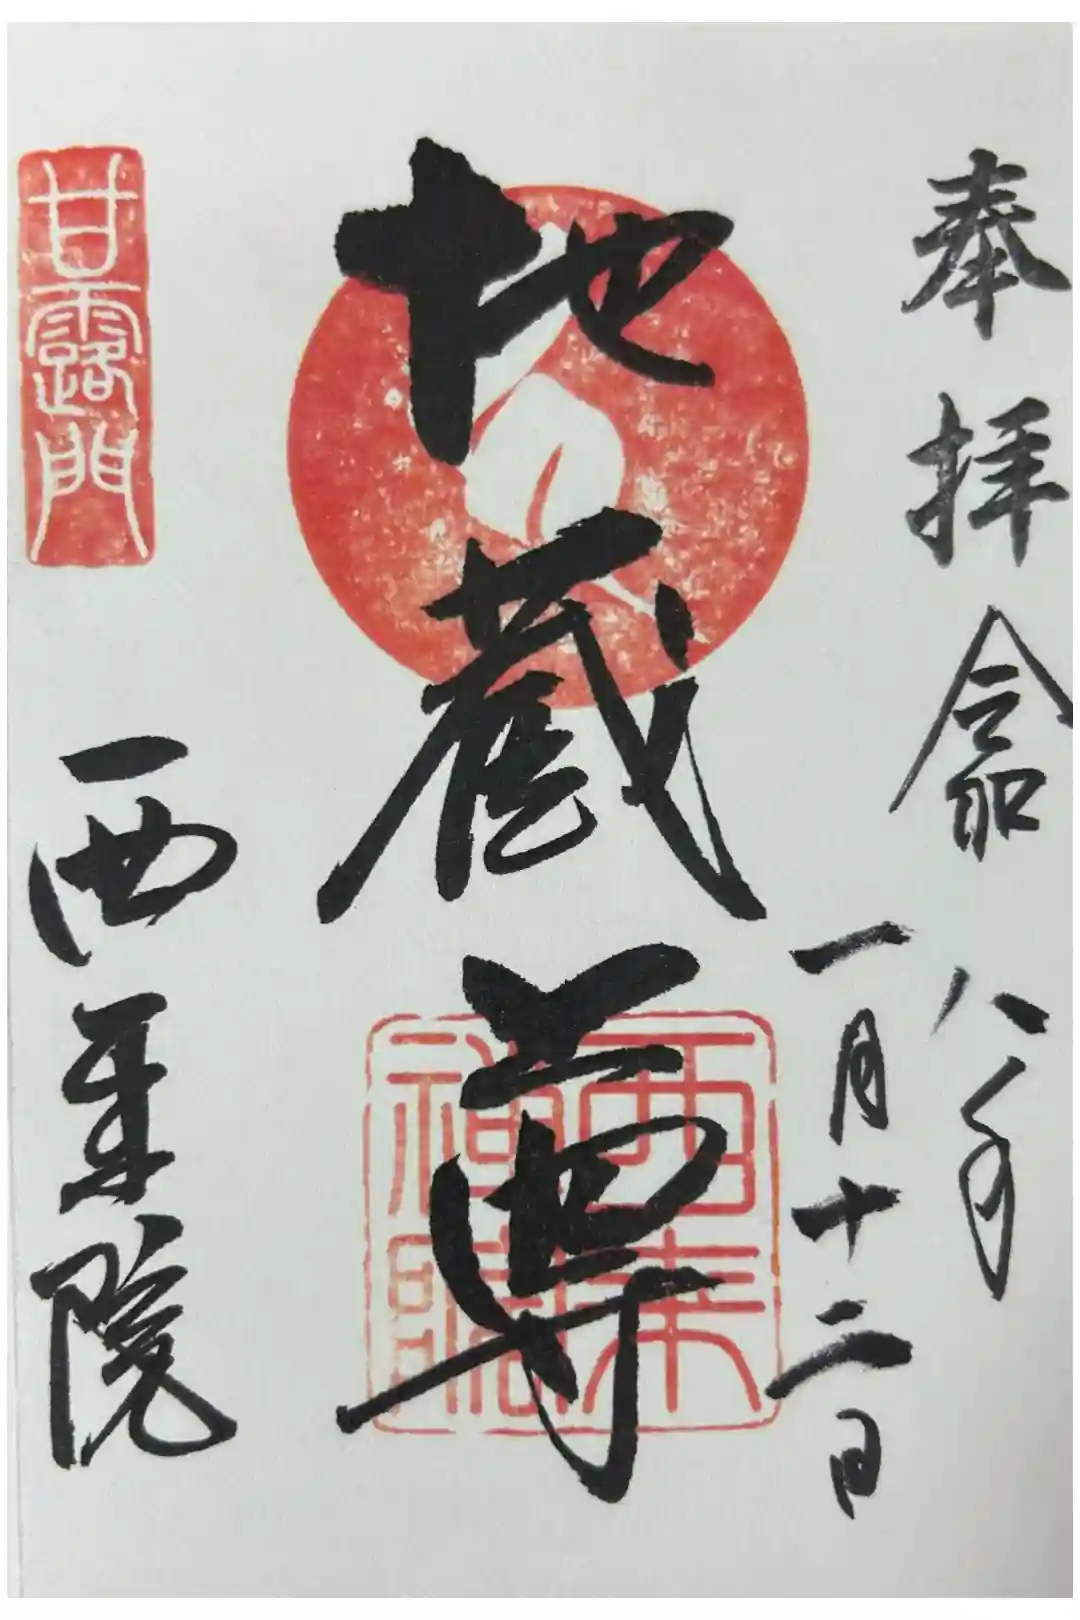 奉拝 令和八年
一月十二日
地蔵尊
西来
禅院
甘露門
西来院